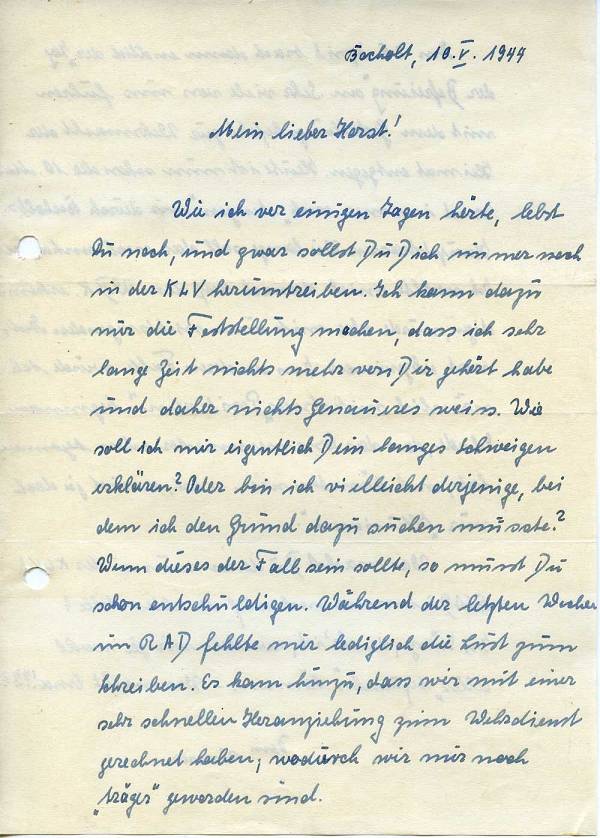 Bocholt, 10.V.1944
Mein lieber Horst!
Wie ich vor einigen Tagen hörte, lebst
Du noch, und zwar sollst Du Dich immer noch
in der KLV herumtreiben. Ich kann dazu
nur die Feststellung machen, dass ich sehr
lange Zeit nichts mehr von Dir gehört habe
und daher nichts Genaueres weiss. Wie
soll ich mir eigentlich Dein langes Schweigen
erklären? Oder bin ich vielleicht derjenige, bei
dem ich den Grund dazu suchen musste?
Wenn dieses der Fall sein sollte, so musst Du
schon entschuldigen. Während der letzten Wochen
im RAD fehlte mir lediglich die Lust zum
Schreiben. Es kam hinzu, dass wir mit einer
sehr schnellen Heranziehung zum Wehrdienst
gerechnet haben, wodurch wir nur noch
"träger" geworden sind.